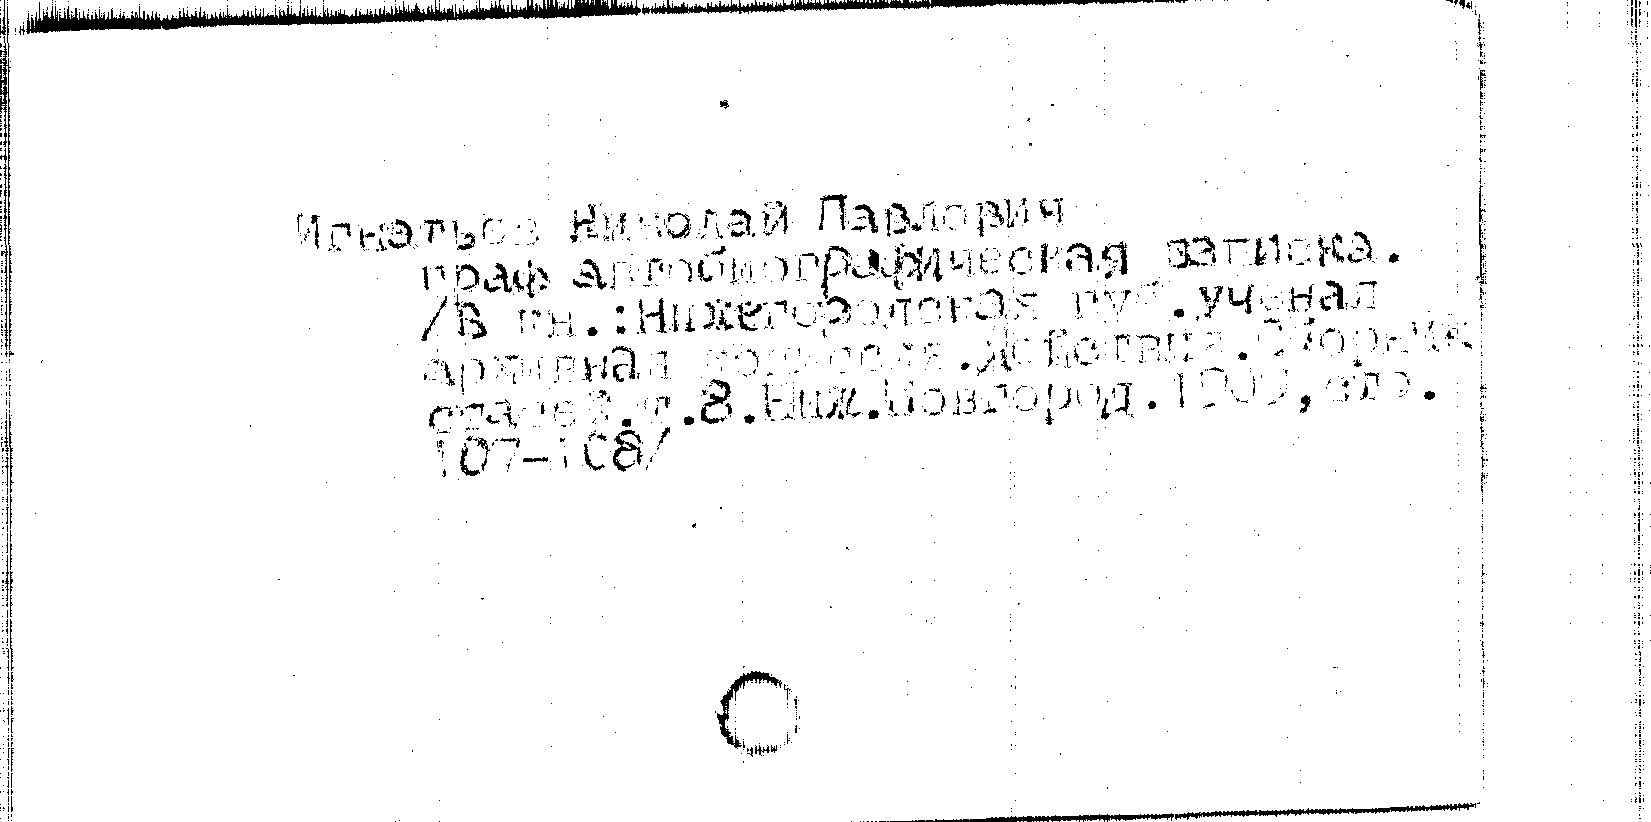 Игнатьев Николай Павлович
граф автобиографическая записка.
/В кн.:Нижегородская губ.ученая
архивная комиссия.Действия.Сборник
статей.т.8.Ниж.Новгород.1909,стр.
107-108/